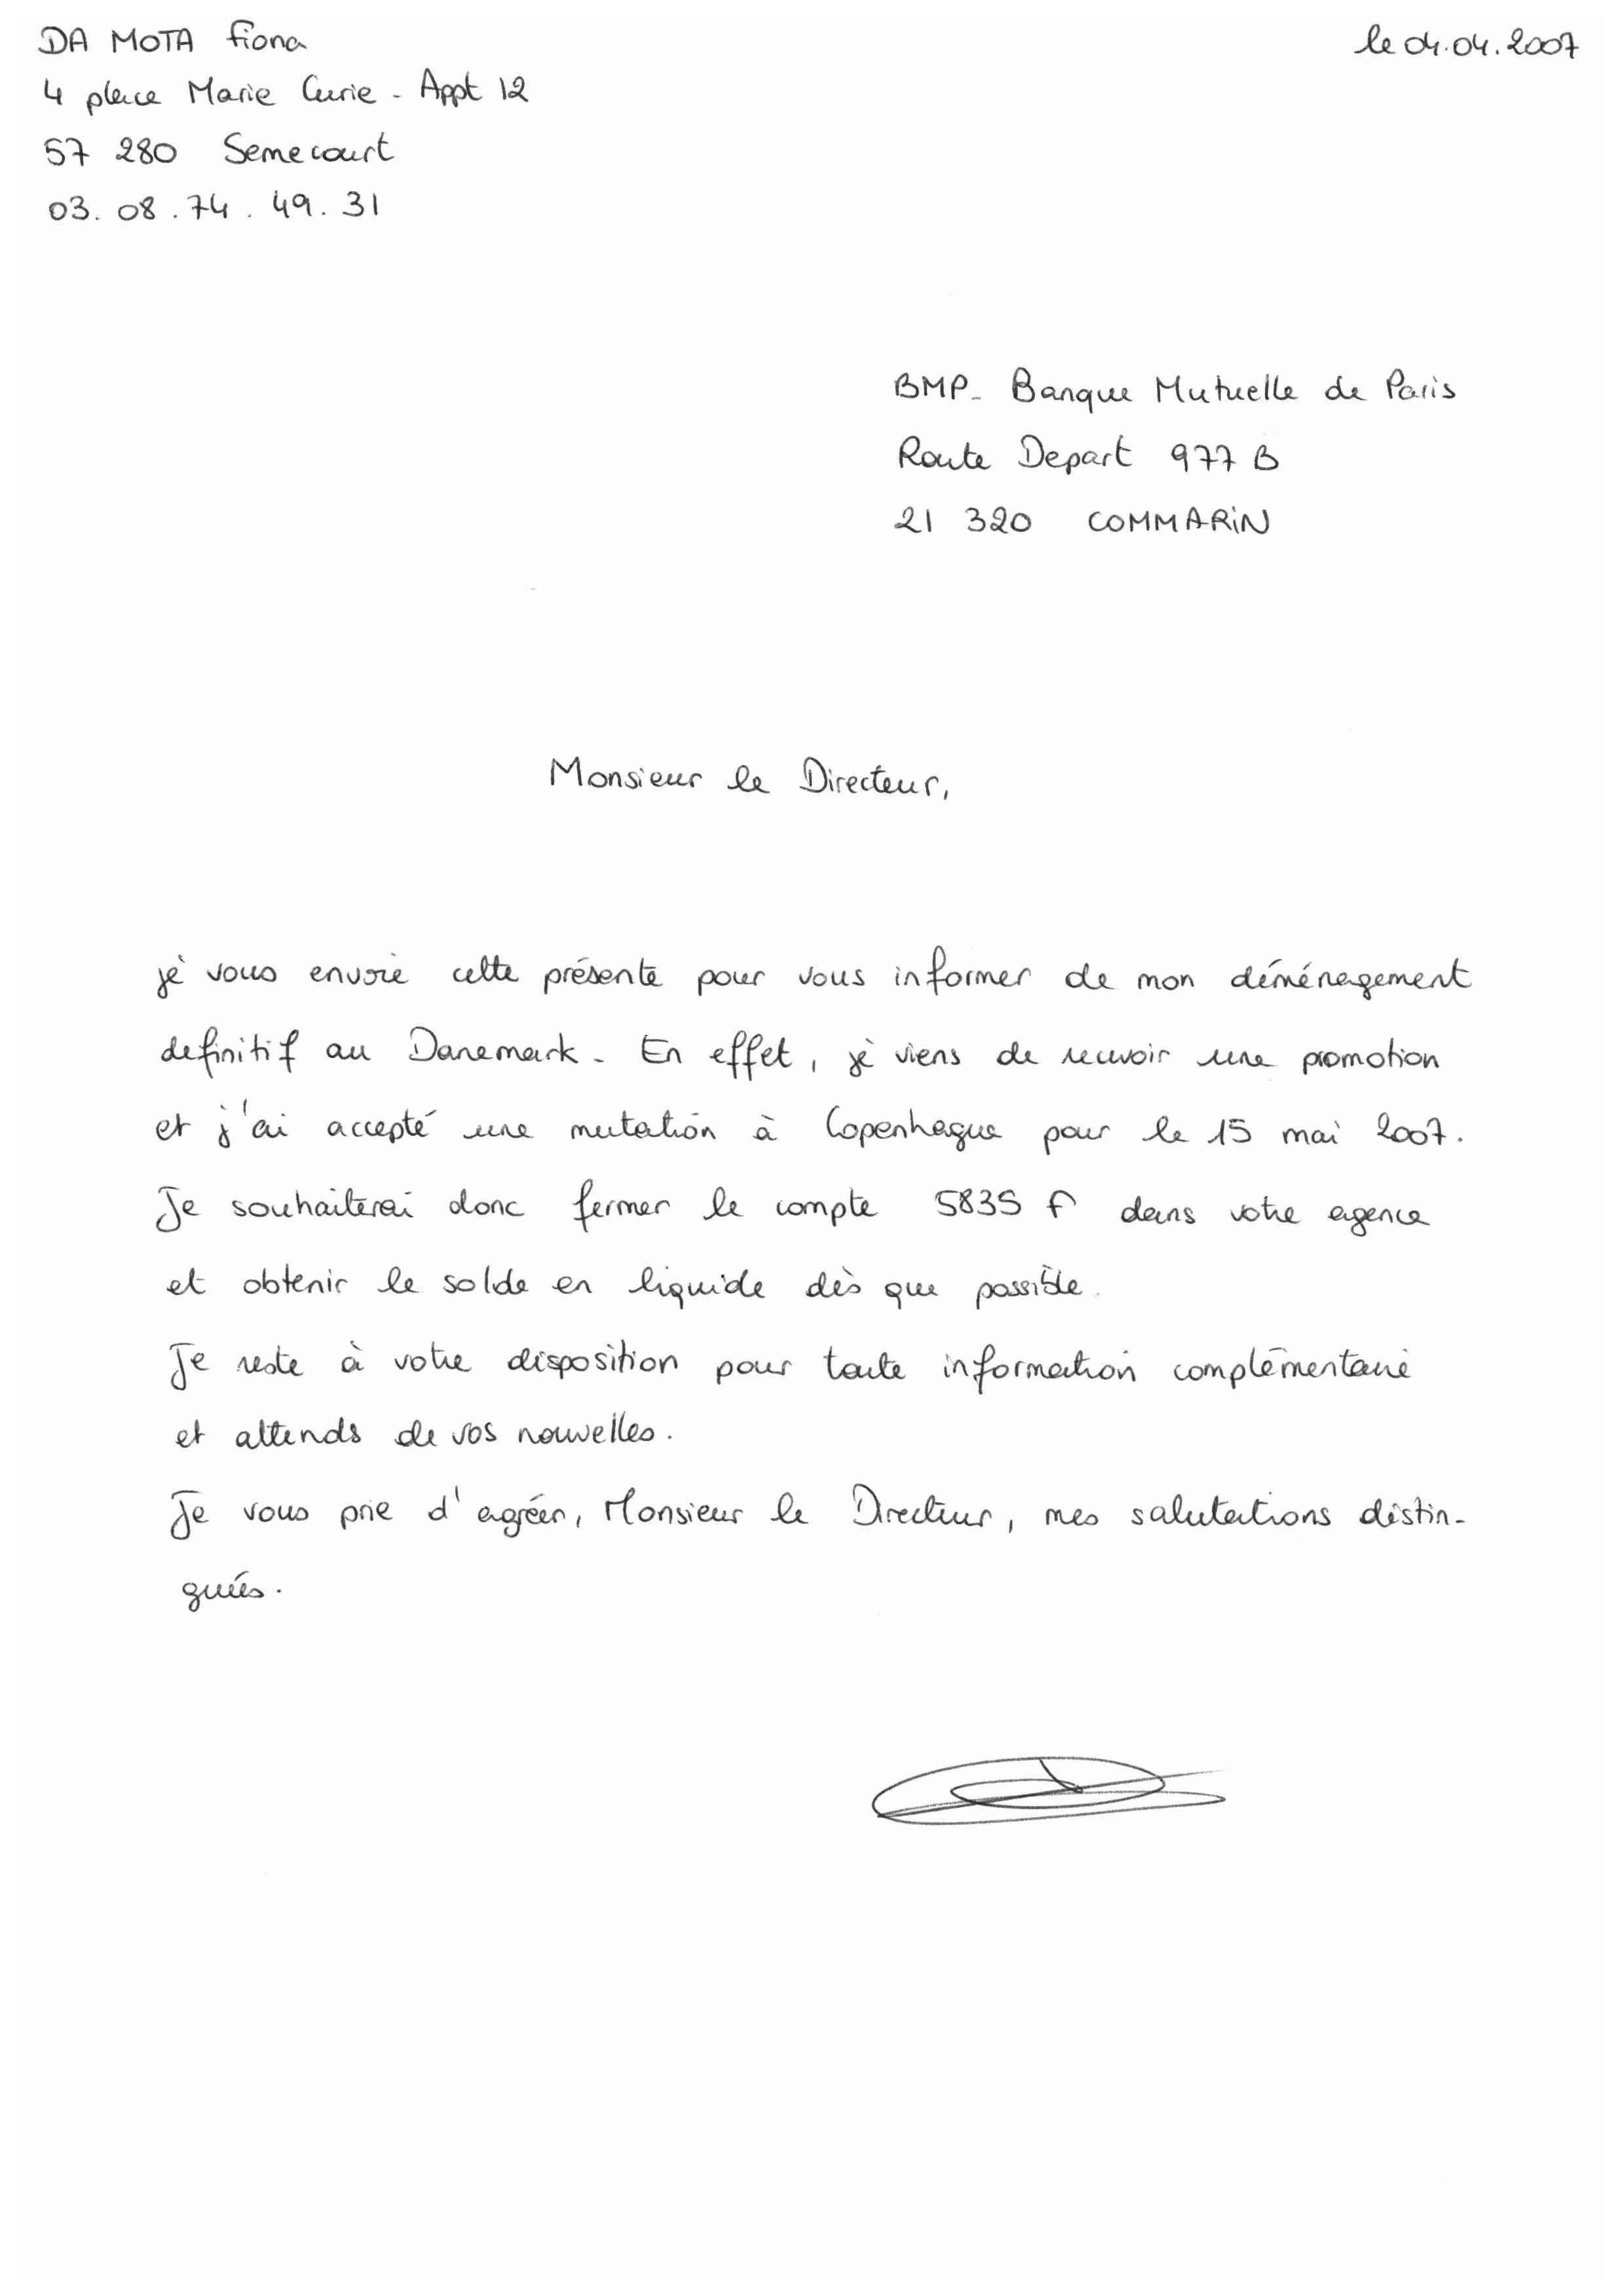 DA MOTA Fiona
le 04.04.2007
4 place Marie Curie - Appt 12
57 280 Semecourt
03. 08. 74. 49. 31
BMP - Banque Mutuelle de Paris
Route Depart 977 B
21 320 COMMARIN
Monsieur le Directeur,
je vous envoie cette présente pour vous informer de mon déménagement
definitif au Danemark. En effet, je viens de recevoir une promotion
et j'ai accepté une mutation à Copenhague pour le 15 mai 2007.
Je souhaiterai donc fermer le compte 5835 F dans votre agence
et obtenir le solde en liquide dès que possible.
Je reste à votre disposition pour toute information complémentaire
et attends de vos nouvelles.
Je vous prie d'agréer, Monsieur le Directeur, mes salutations distin-
guées.